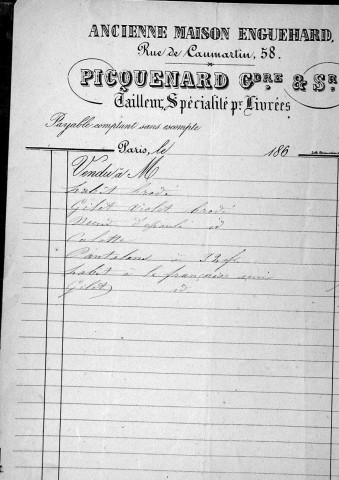 ANCIENNE MAISON ENGUEHARD,
Rue de Caumartin, 58.
PICQUENARD GDRE & SR
Tailleur, Spécialité pr Livrées
Payable comptant sans escompte
Paris, le 186
Vendu à M
habit brodé
Gilet violet brodé
Culotte
Pantalons
habit à la française uni
Gilet id